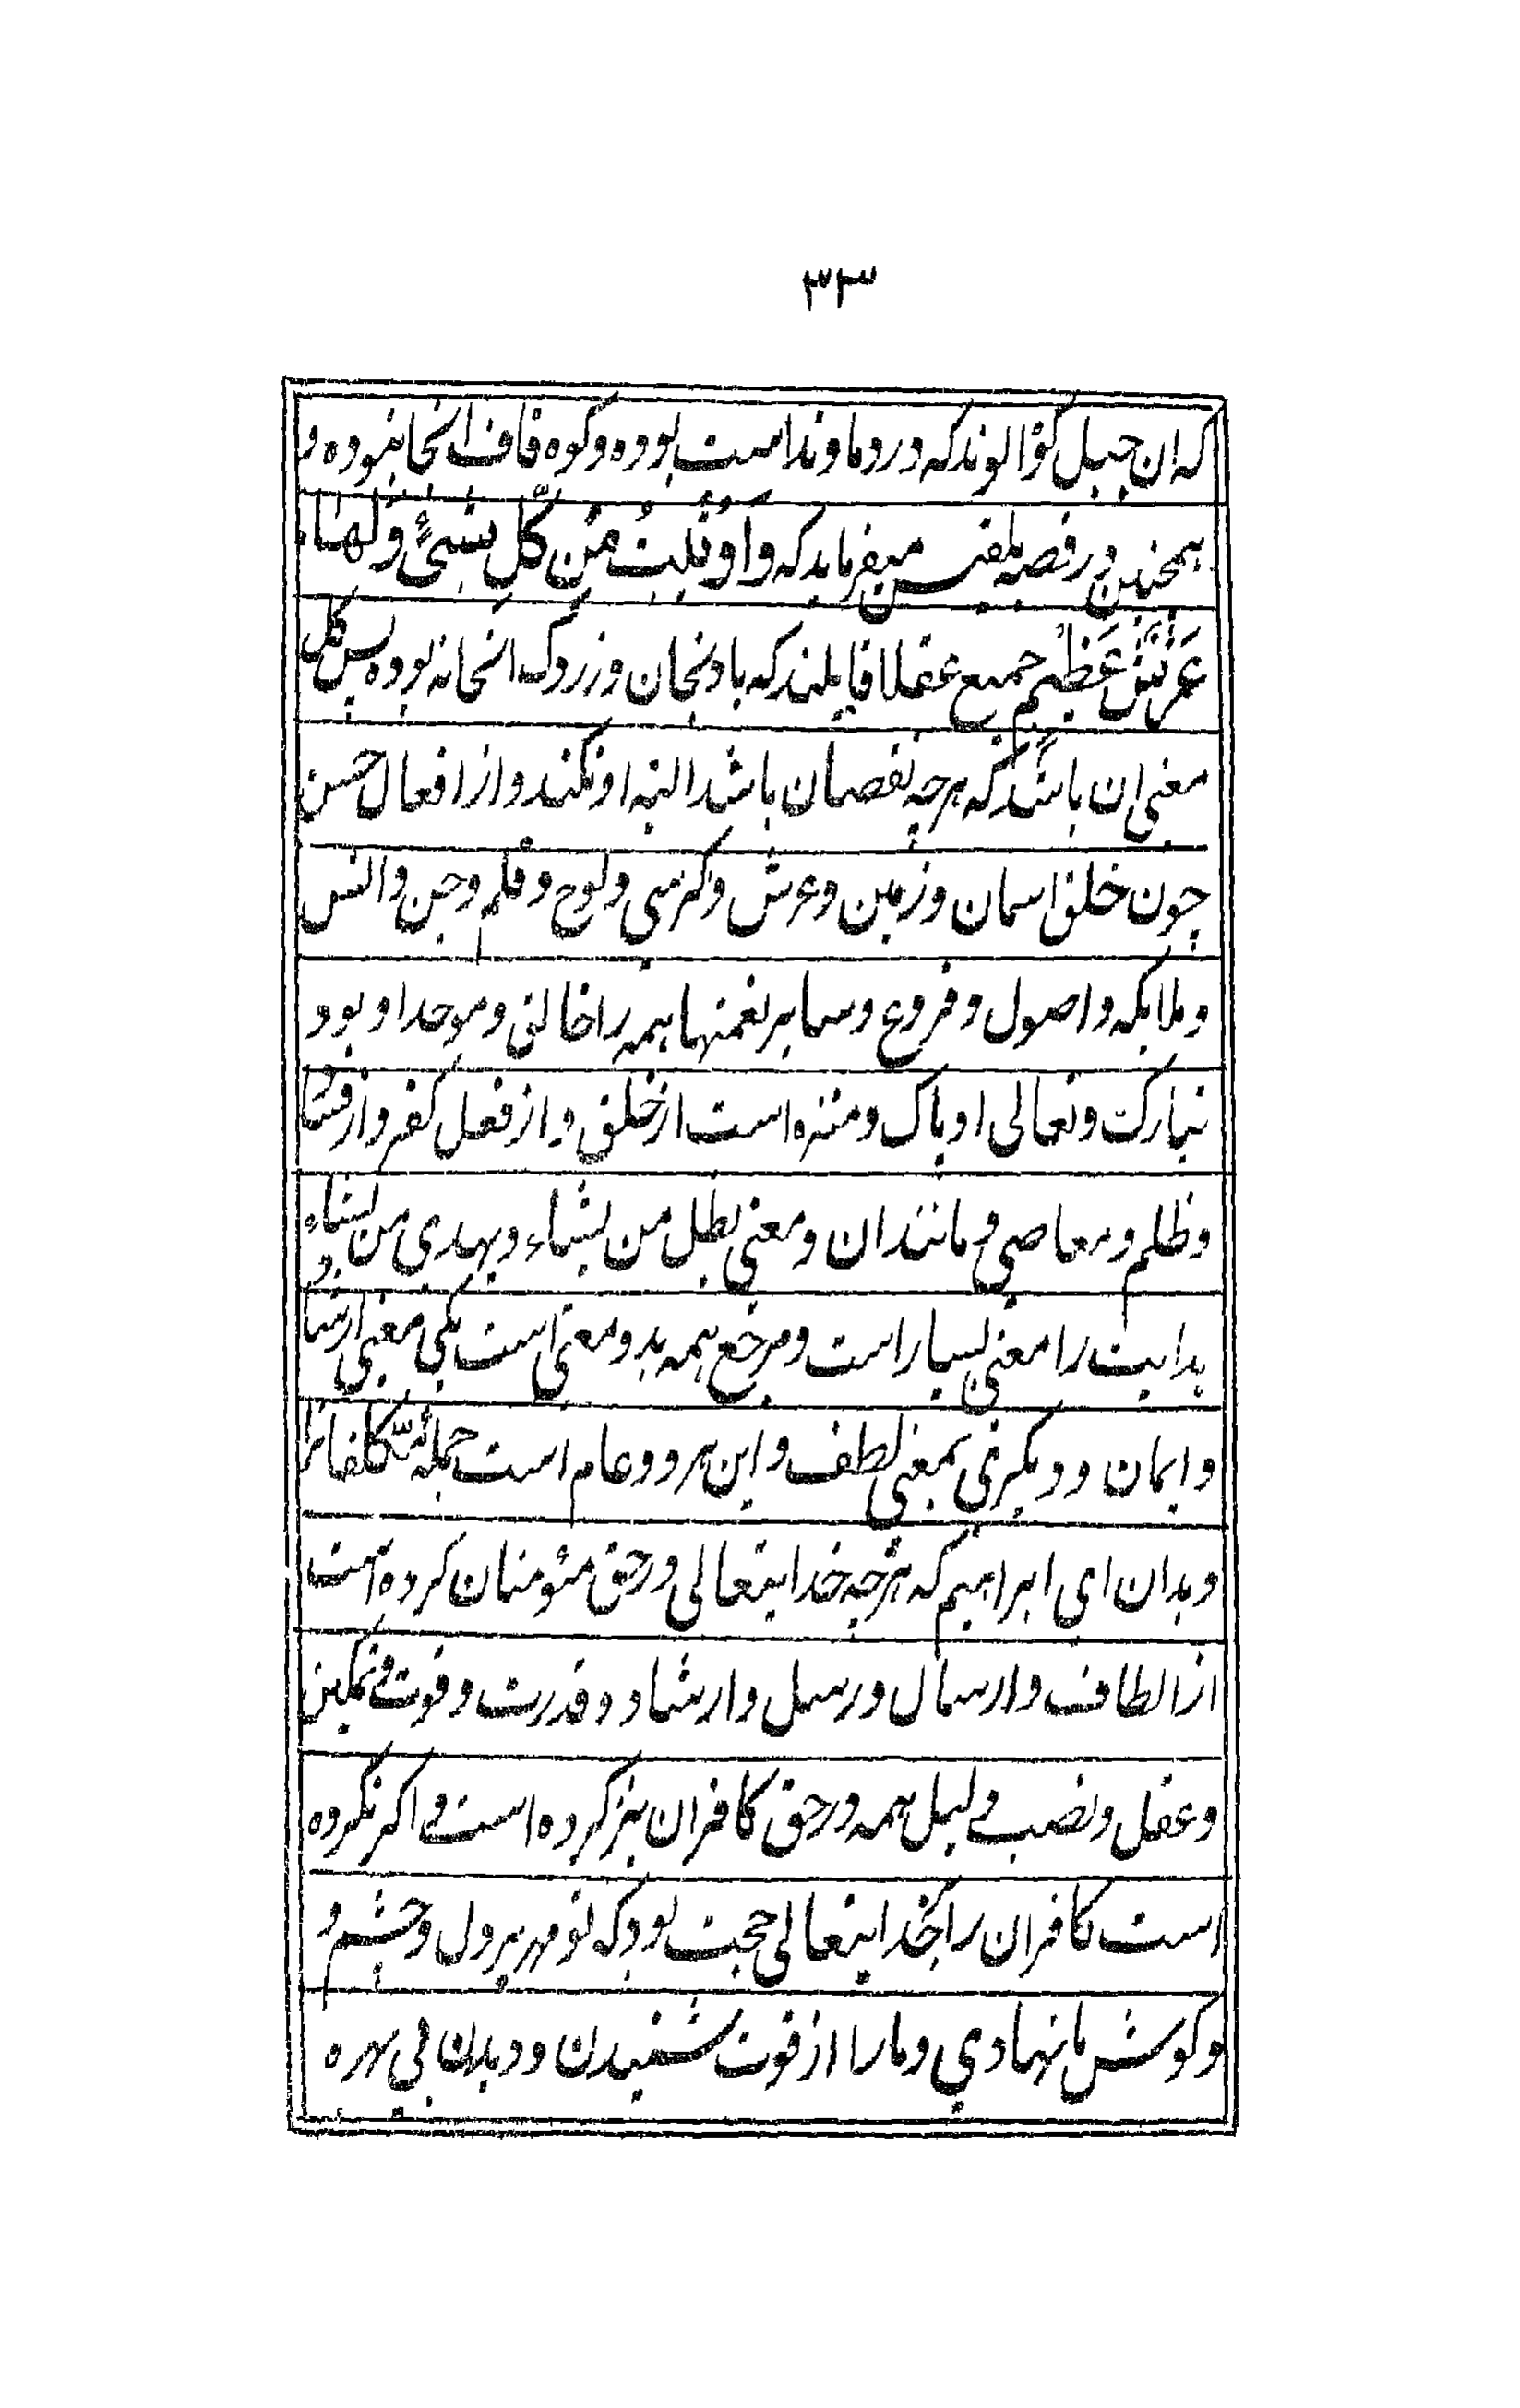 ۳۳
که ان جبل کوه الوند که در دماوند است بوده و کوه قاف انجا نبوده و
همچنین در قصه بلقیس میفرماید که وَاُوتِیَتْ مِنْ کُلِّ شَیْءٍ وَلَهَا
عَرْشٌ عَظِیْمٌ جمیع عقلا قایلند که بادنجان و زردک انجا نه بوده پس کل
معنی ان باشد که هرچه نقصان باشد البته او نکند و از افعال حسن
چون خلق اسمان و زمین و عرش و کرسی و لوح و قلم و جن و انس
و ملایکه و اصول و فروع و سایر نعمتها همه را خالق و موجد او بود
تبارک و تعالی او پاک و منزه است از خلق و از فعل کفر و از فساد
و ظلم و معاصی و مانند ان و معنی یضل من یشاء و یهدی من یشاء و
هدایت را معنی بسیار است و مرجع همه بدو معنی است یکی معنی ارشاد
و ایمان و دیگری بمعنی لطف و این هر دو عام است جمله مکلفانرا
و بدان ای ابراهیم که هرچه خدایتعالی در حق مئومنان کرده است
از الطاف و ارسال و رسل و ارشاد و قدرت و قوت و تمکین
و عقل و نصب دلیل همه در حق کافران نیز کرده است و اکر نکرده
است کافران را بخدایتعالی حجت بود که تو مهر بر دل و چشم و
و کوش ما نهادی و ما را از قوت شنیدن و دیدن بی بهره